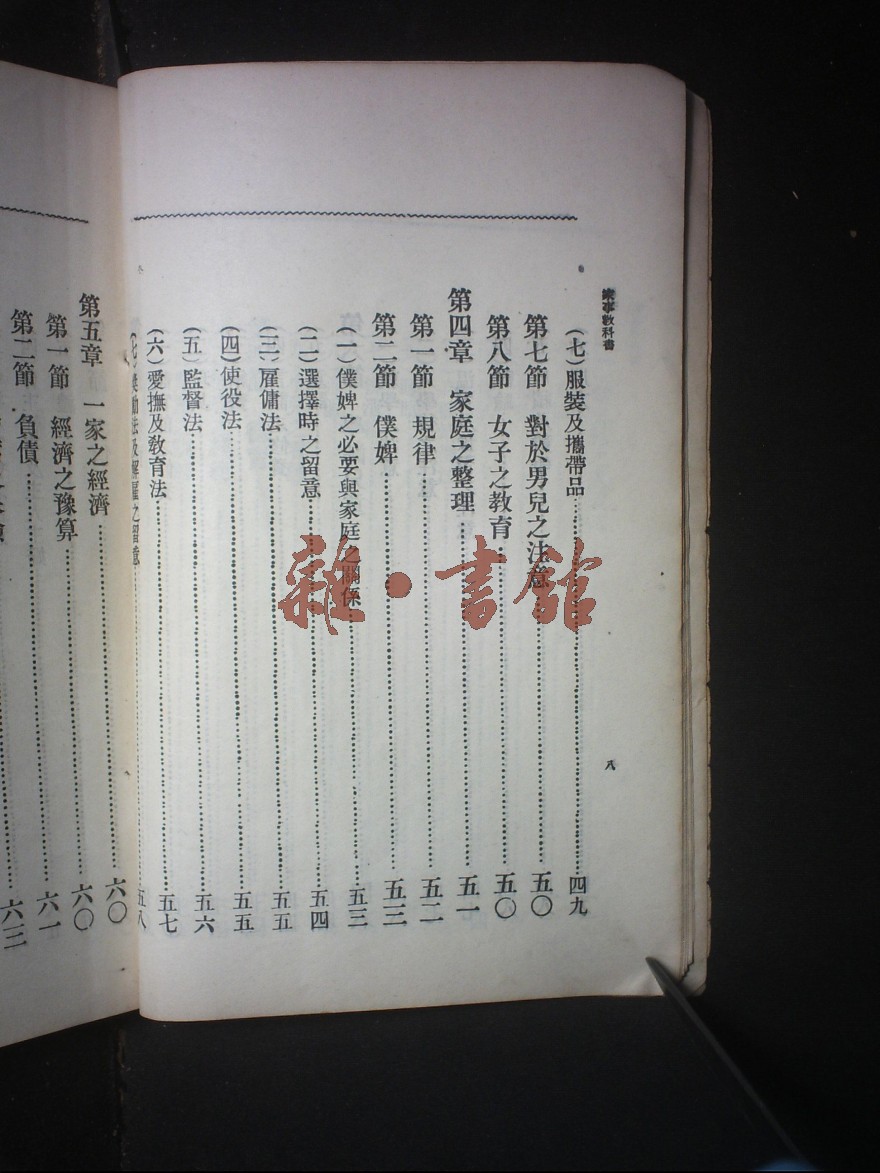 家事教科書
八
(七)服裝及攜帶品 四九
第七節 對於男兒之注意 五〇
第八節 女子之教育 五〇
第四章 家庭之整理 五一
第一節 規律 五二
第二節 僕婢 五三
(一)僕婢之必要與家庭之關係 五三
(二)選擇時之留意 五四
(三)雇傭法 五五
(四)使役法 五五
(五)監督法 五六
(六)愛撫及教育法 五七
(七)獎勵法及解雇之留意 五八
第五章 一家之經濟 六〇
第一節 經濟之豫算 六〇
第二節 負債 六一
六三
雜·書館